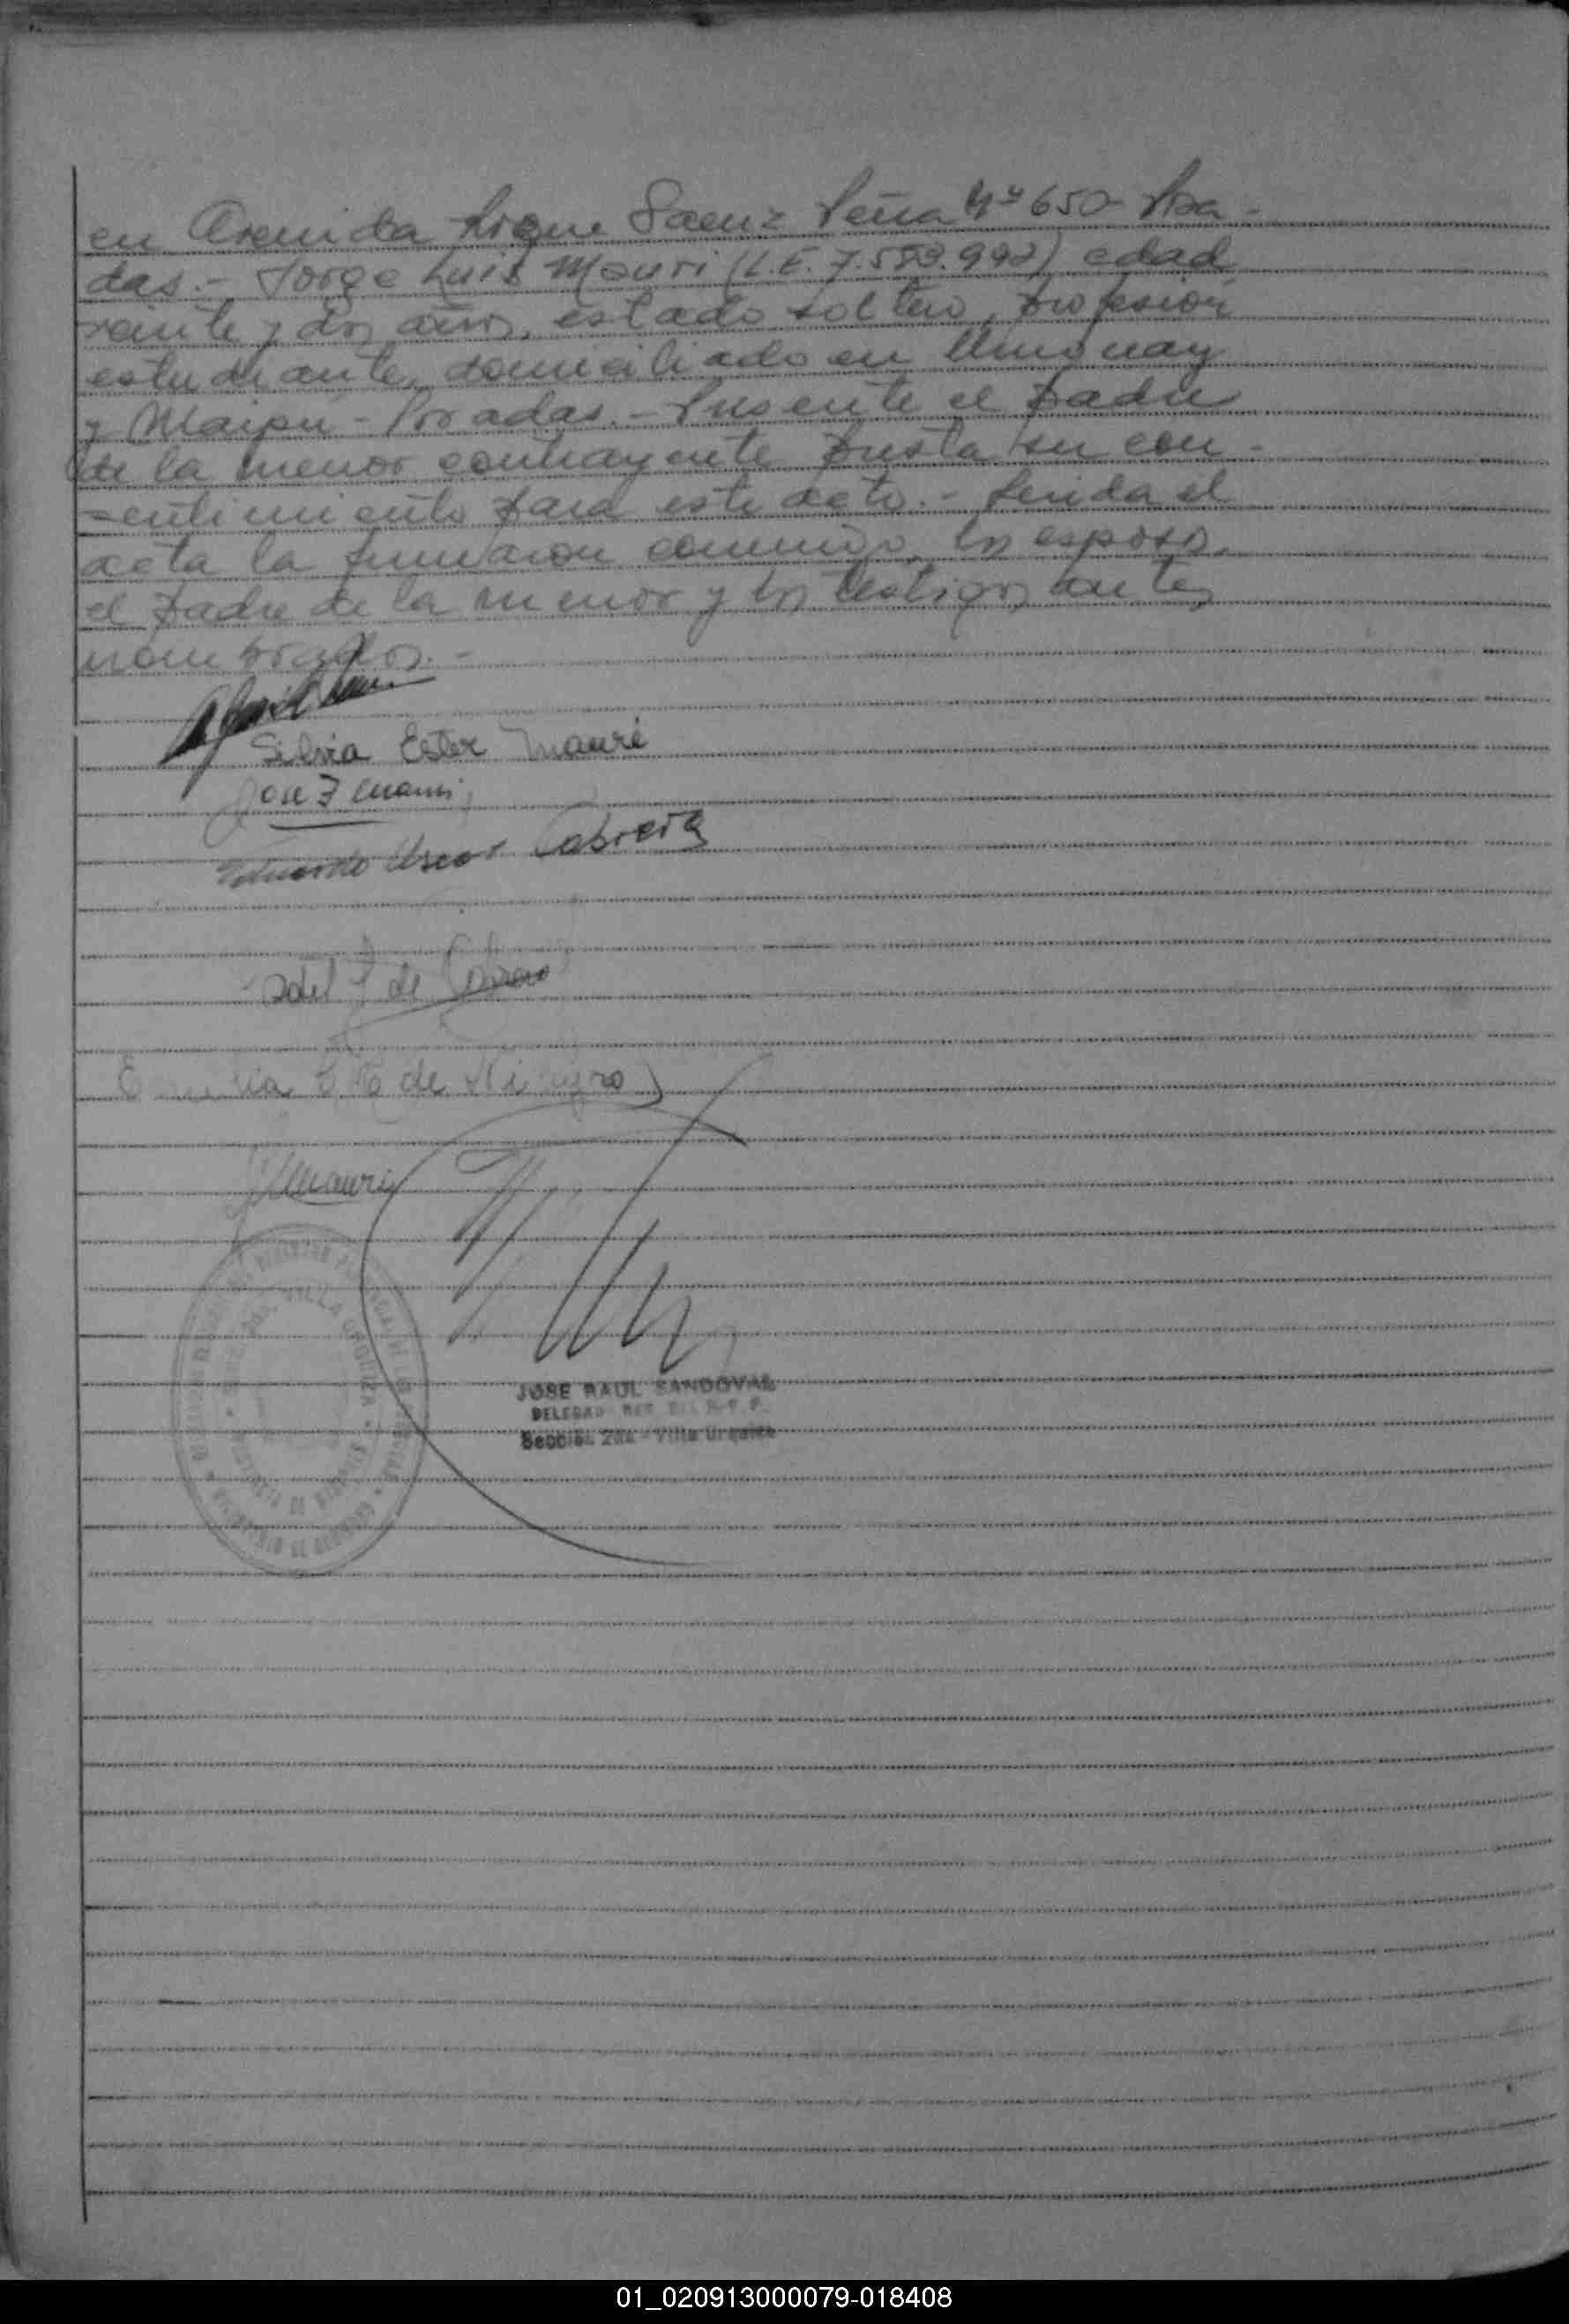 en Avenida Roque Saenz Peña Nº 650- Posa-
das.- Jorge Luis Mauri (L.E. 7.583.992) edad
veinte y dos años, estado soltero, profesión
estudiante, domiciliado en Uruguay
y Maipu - Posadas.- Presente el padre
de la menor contrayente presta su con-
sentimiento para este acto.- Leida el
acta la firmaron conmigo, los esposos,
el padre de la menor y los testigos antes
nombrados.-
Silvia Ester Mauri
Jose F Mauri
Eduardo Oscar Cabrera
de
de
Mauri
VILLA URQUIZA
JOSE RAUL SANDOVAL
DELEGADO
Sección 2da - Villa Urquiza
01_020913000079-018408